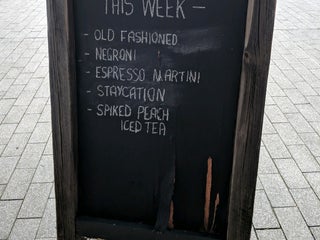 THIS WEEK —
- OLD FASHIONED
- NEGRONI
- ESPRESSO MARTINI
- STAYCATION
- SPIKED PEACH
ICED TEA